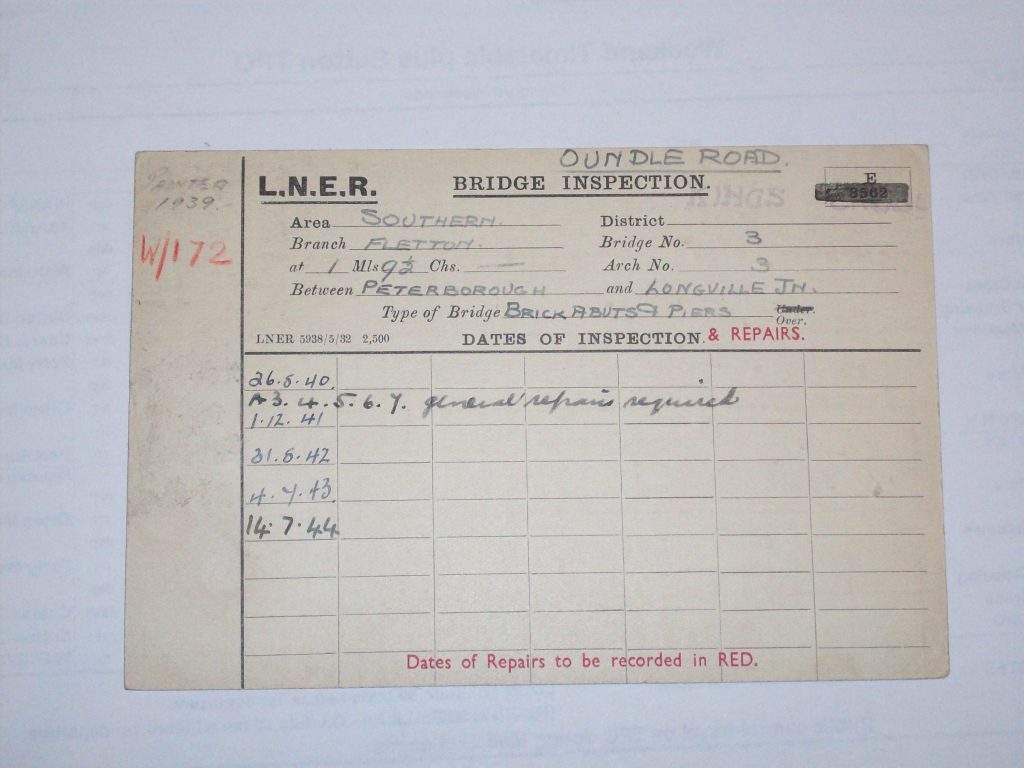 OUNDLE ROAD.
PAINTED
1939.
L.N.E.R.
BRIDGE INSPECTION.
E
8562
W/172
Area SOUTHERN.
District
Branch FLETTON.
Bridge No. 3
at 1 Mls 9½ Chs. —
Arch No. 3
Between PETERBOROUGH and LONGVILLE JN.
Type of Bridge BRICK ABUTS & PIERS Under. Over.
LNER 5938/5/32 2,500
DATES OF INSPECTION. & REPAIRS.
26.5.40.
A3.4.5.6.7. general repairs required
1.12.41
31.5.42
4.7.43.
14.7.44
Dates of Repairs to be recorded in RED.